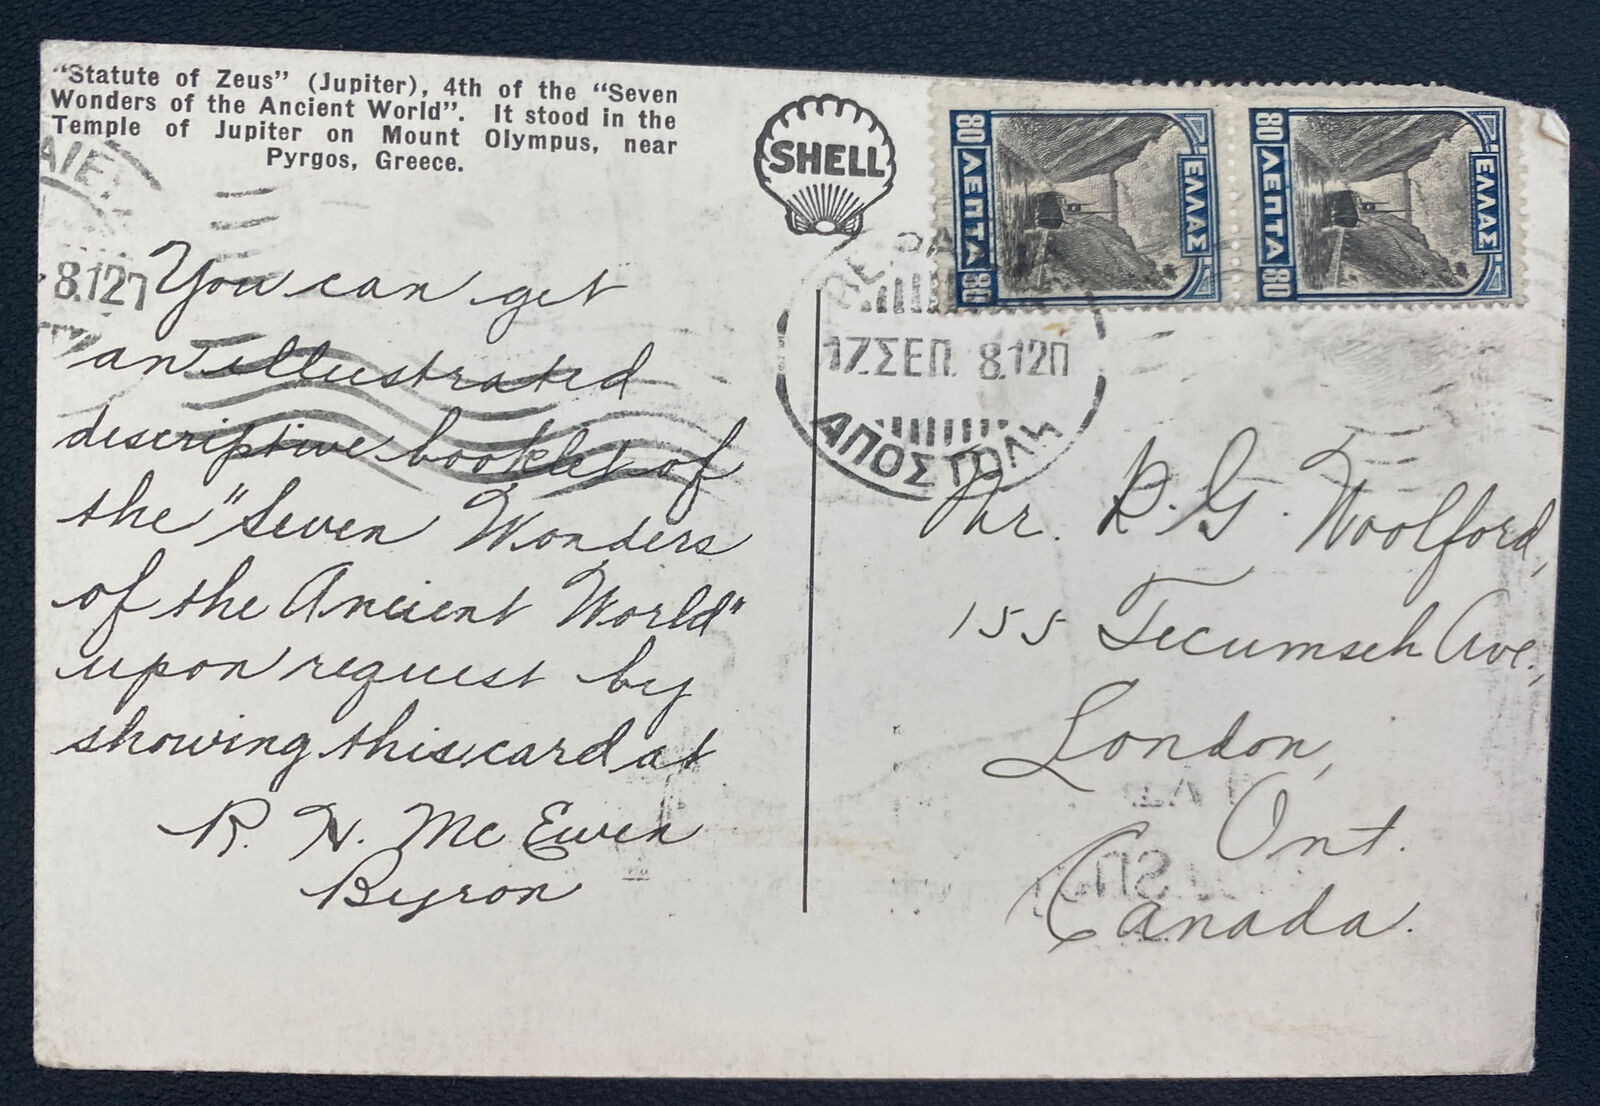 "Statute of Zeus" (Jupiter), 4th of the "Seven
Wonders of the Ancient World". It stood in the
Temple of Jupiter on Mount Olympus, near
Pyrgos, Greece.
SHELL
80 ΛΕΠΤΑ 80
ΕΛΛΑΣ
80 ΛΕΠΤΑ 80
ΕΛΛΑΣ
8.12Π
17.ΣΕΠ. 8.12Π
ΑΠΟΣΤΟΛΗ
You can get
an illustrated
descriptive booklet of
the "Seven Wonders
of the Ancient World"
upon request by
showing this card at
R. H. McEwen
Byron
Mr. R. G. Woolford,
155 Tecumseh Ave.,
London,
Ont.
Canada.